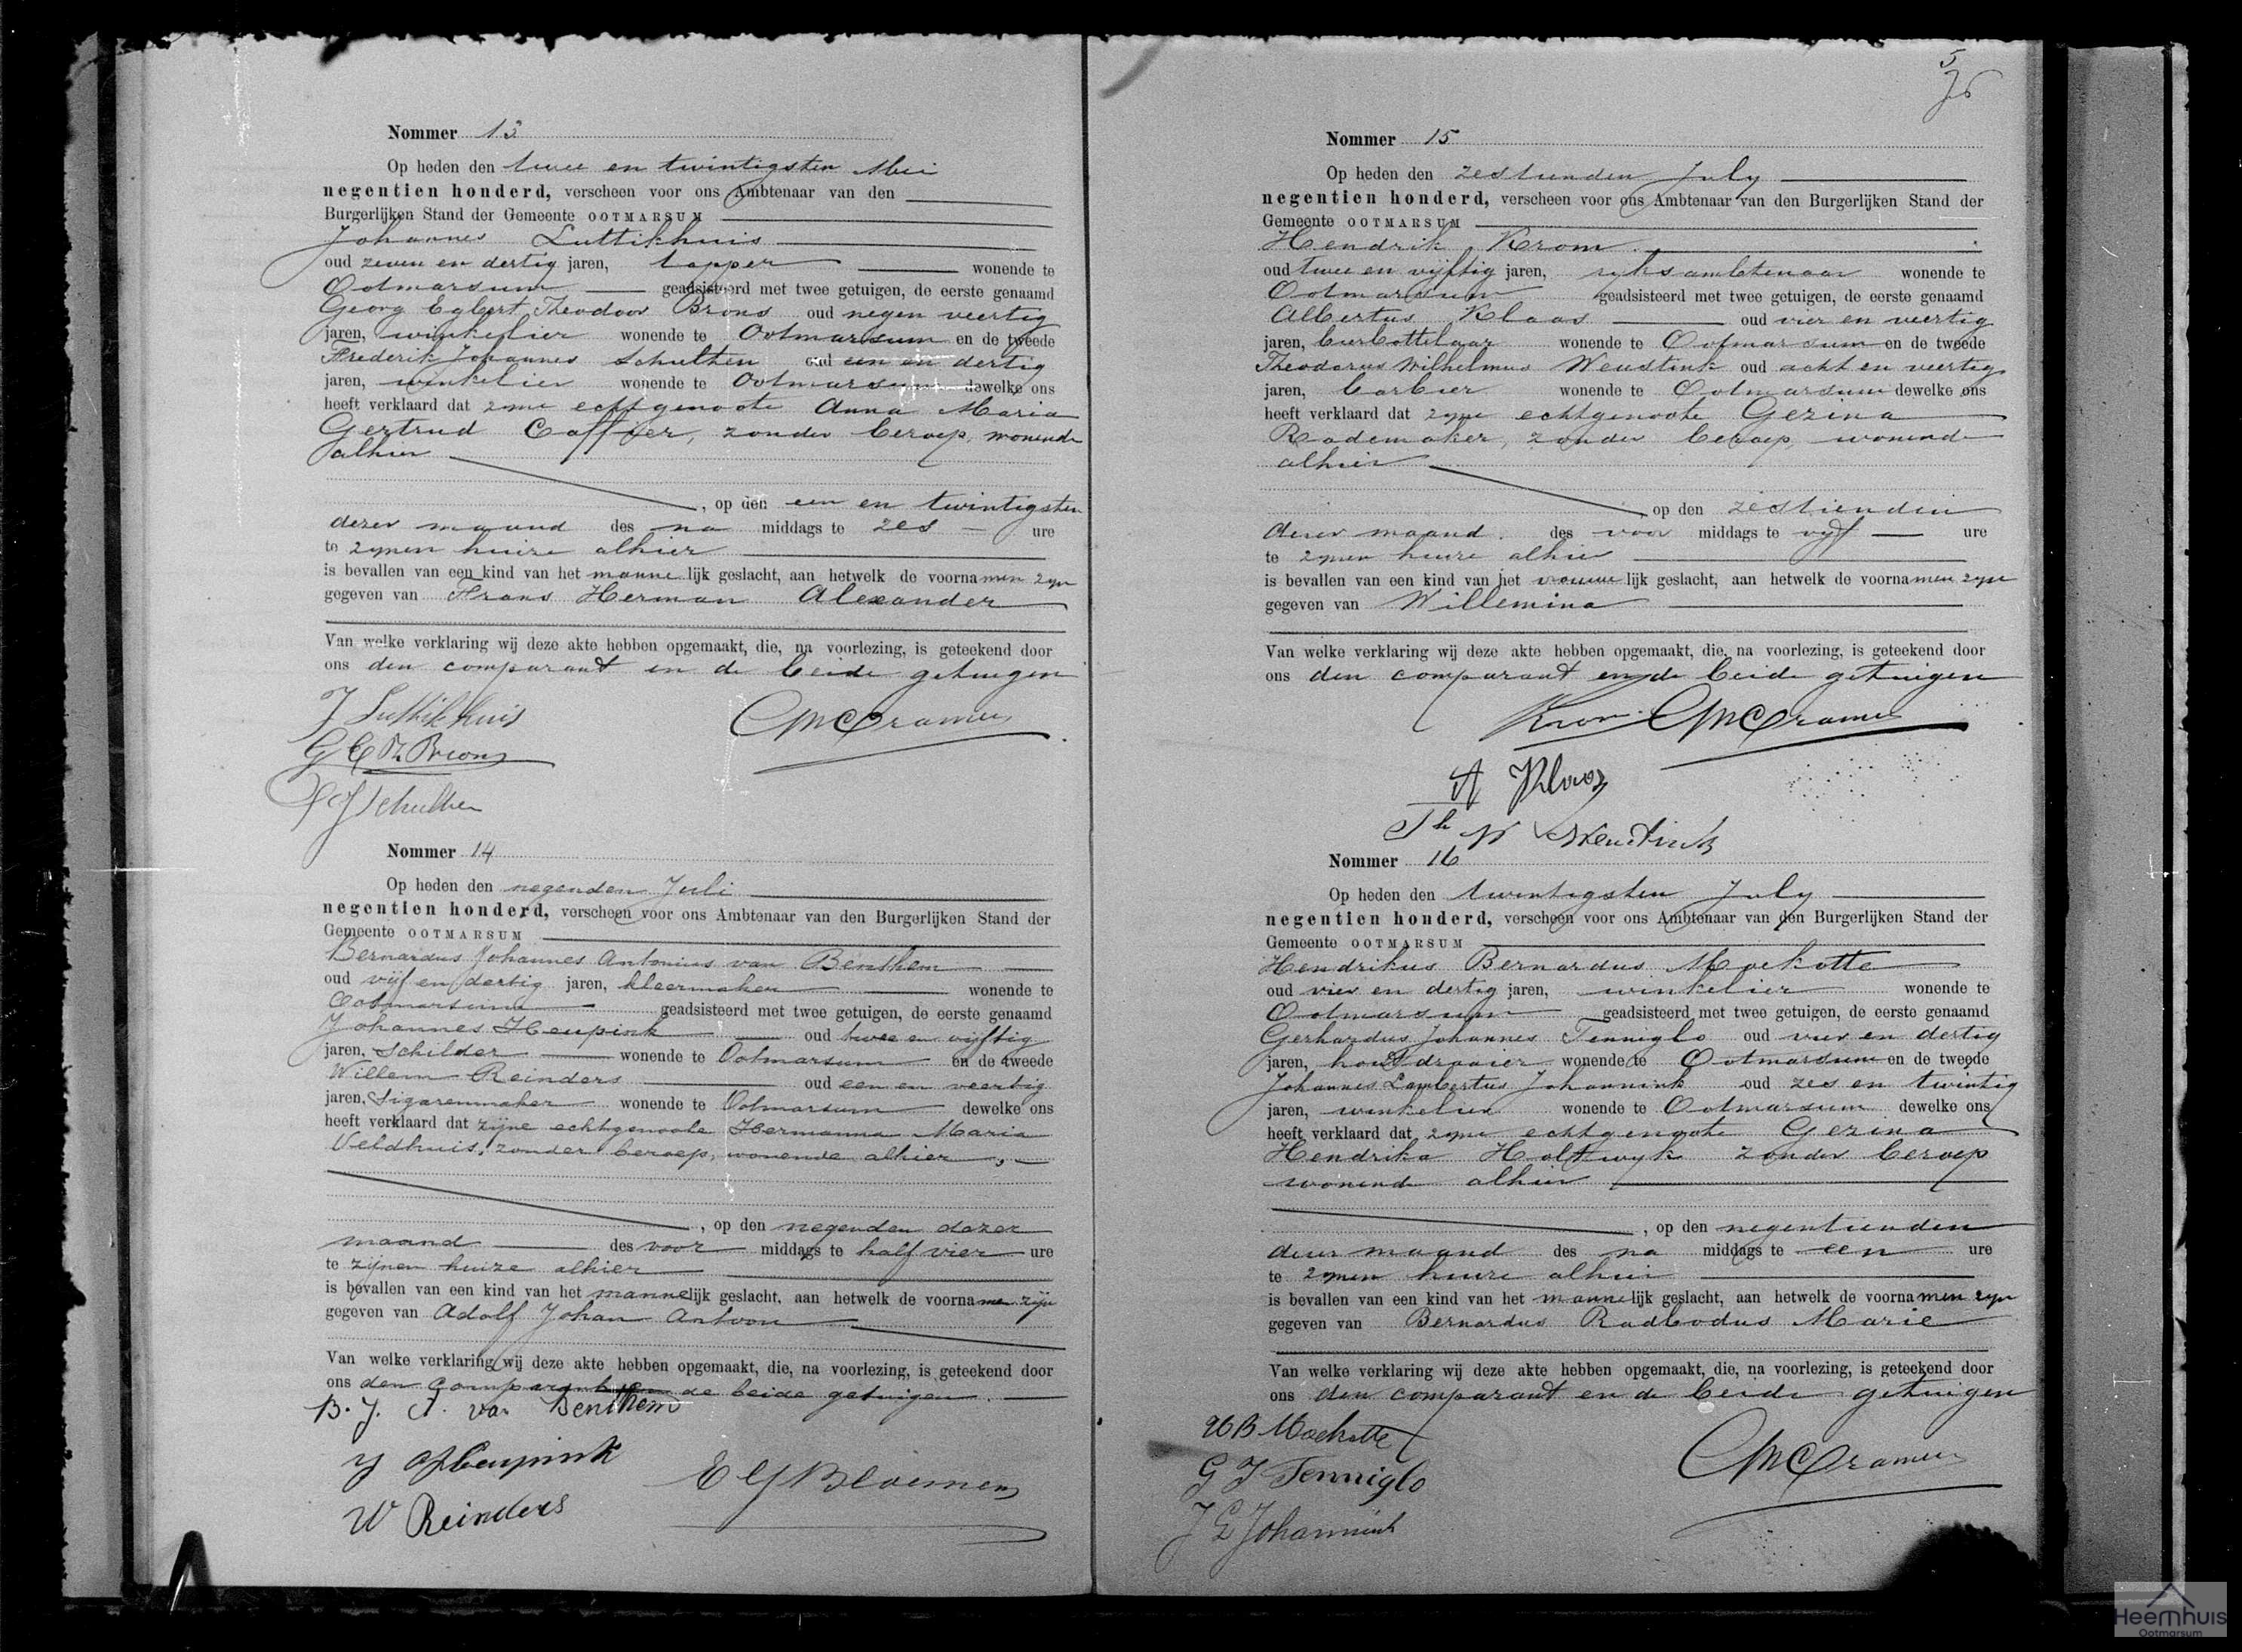 Nommer 13
Op heden den twee en twintigsten Mei
negentien honderd, verscheen voor ons Ambtenaar van den
Burgerlijken Stand der Gemeente OOTMARSUM
Johannes Luttikhuis
oud zeven en dertig jaren, tapper wonende te
Ootmarsum geadsisteerd met twee getuigen, de eerste genaamd
Georg Egbert Theodoor Brons oud negen veertig
jaren, winkelier wonende te Ootmarsum en de tweede
Frederik Johannes Schulten oud een en dertig
jaren, winkelier wonende te Ootmarsum dewelke ons
heeft verklaard dat zyne echtgenoote Anna Maria
Gertrud Caffier, zonder beroep, wonende
alhier
, op den een en twintigsten
dezer maand des na middags te zes ure
te zynen huize alhier
is bevallen van een kind van het mannelijk geslacht, aan hetwelk de voornamen zyn
gegeven van Frans Herman Alexander
Van welke verklaring wij deze akte hebben opgemaakt, die, na voorlezing, is geteekend door
ons den comparant en de beide getuigen
J Luttikhuis
CMCramer
G E Th Brons
F J Schulten
Nommer 14
Op heden den negenden Juli
negentien honderd, verscheen voor ons Ambtenaar van den Burgerlijken Stand der
Gemeente OOTMARSUM
Bernardus Johannes Antonius van Benthem
oud vijf en dertig jaren, kleermaker wonende te
Ootmarsum geadsisteerd met twee getuigen, de eerste genaamd
Johannes Heupink oud twee en vijftig
jaren, Schilder wonende te Ootmarsum en de tweede
Willem Reinders oud een en veertig
jaren, Sigarenmaker wonende te Ootmarsum dewelke ons
heeft verklaard dat zijne echtgenoote Hermanna Maria
Veldhuis, zonder beroep, wonende alhier
, op den negenden dezer
maand des voor middags te half vier ure
te zijnen huize alhier
is bevallen van een kind van het mannelijk geslacht, aan hetwelk de voornamen zijn
gegeven van Adolf Johan Antoon
Van welke verklaring wij deze akte hebben opgemaakt, die, na voorlezing, is geteekend door
ons den comparant en de beide getuigen.
B. J. A. van Benthem
J Heupink
W Reinders
Bloemen
5
Nommer 15
Op heden den zestienden July
negentien honderd, verscheen voor ons Ambtenaar van den Burgerlijken Stand der
Gemeente OOTMARSUM
Hendrik Krom
oud twee en vijftig jaren, ryksambtenaar wonende te
Ootmarsum geadsisteerd met twee getuigen, de eerste genaamd
Albertus Klaas oud vier en veertig
jaren, bierbottelaar wonende te Ootmarsum en de tweede
Theodorus Wilhelmus Weustink oud acht en veertig
jaren, barbier wonende te Ootmarsum dewelke ons
heeft verklaard dat zyne echtgenoote Gezina
Rademaker, zonder beroep, wonende
alhier
op den zestienden
dezer maand des voor middags te vyf ure
te zynen huize alhier
is bevallen van een kind van het vrouwelijk geslacht, aan hetwelk de voornamen zyn
gegeven van Willemina
Van welke verklaring wij deze akte hebben opgemaakt, die, na voorlezing, is geteekend door
ons den comparant en de beide getuigen
Krom CMCramer
A Klaas
Th W Weustink
Nommer 16
Op heden den twintigsten July
negentien honderd, verscheen voor ons Ambtenaar van den Burgerlijken Stand der
Gemeente OOTMARSUM
Hendrikus Bernardus Mockotte
oud vier en dertig jaren, winkelier wonende te
Ootmarsum geadsisteerd met twee getuigen, de eerste genaamd
Gerhardus Johannes Tenniglo oud vier en dertig
jaren, houtdraaier wonende te Ootmarsum en de tweede
Johannes Lambertus Johannink oud zes en twintig
jaren, winkelier wonende te Ootmarsum dewelke ons
heeft verklaard dat zyne echtgenoote Gezina
Hendrika Holtwyk zonder beroep
wonende alhier
, op den negentienden
dezer maand des na middags te een ure
te zynen huize alhier
is bevallen van een kind van het mannelijk geslacht, aan hetwelk de voornamen zyn
gegeven van Bernardus Radbodus Marie
Van welke verklaring wij deze akte hebben opgemaakt, die, na voorlezing, is geteekend door
ons den comparant en de beide getuigen
HB Mockotte
CMCramer
G J Tenniglo
J L Johannink
Heemhuis
Ootmarsum